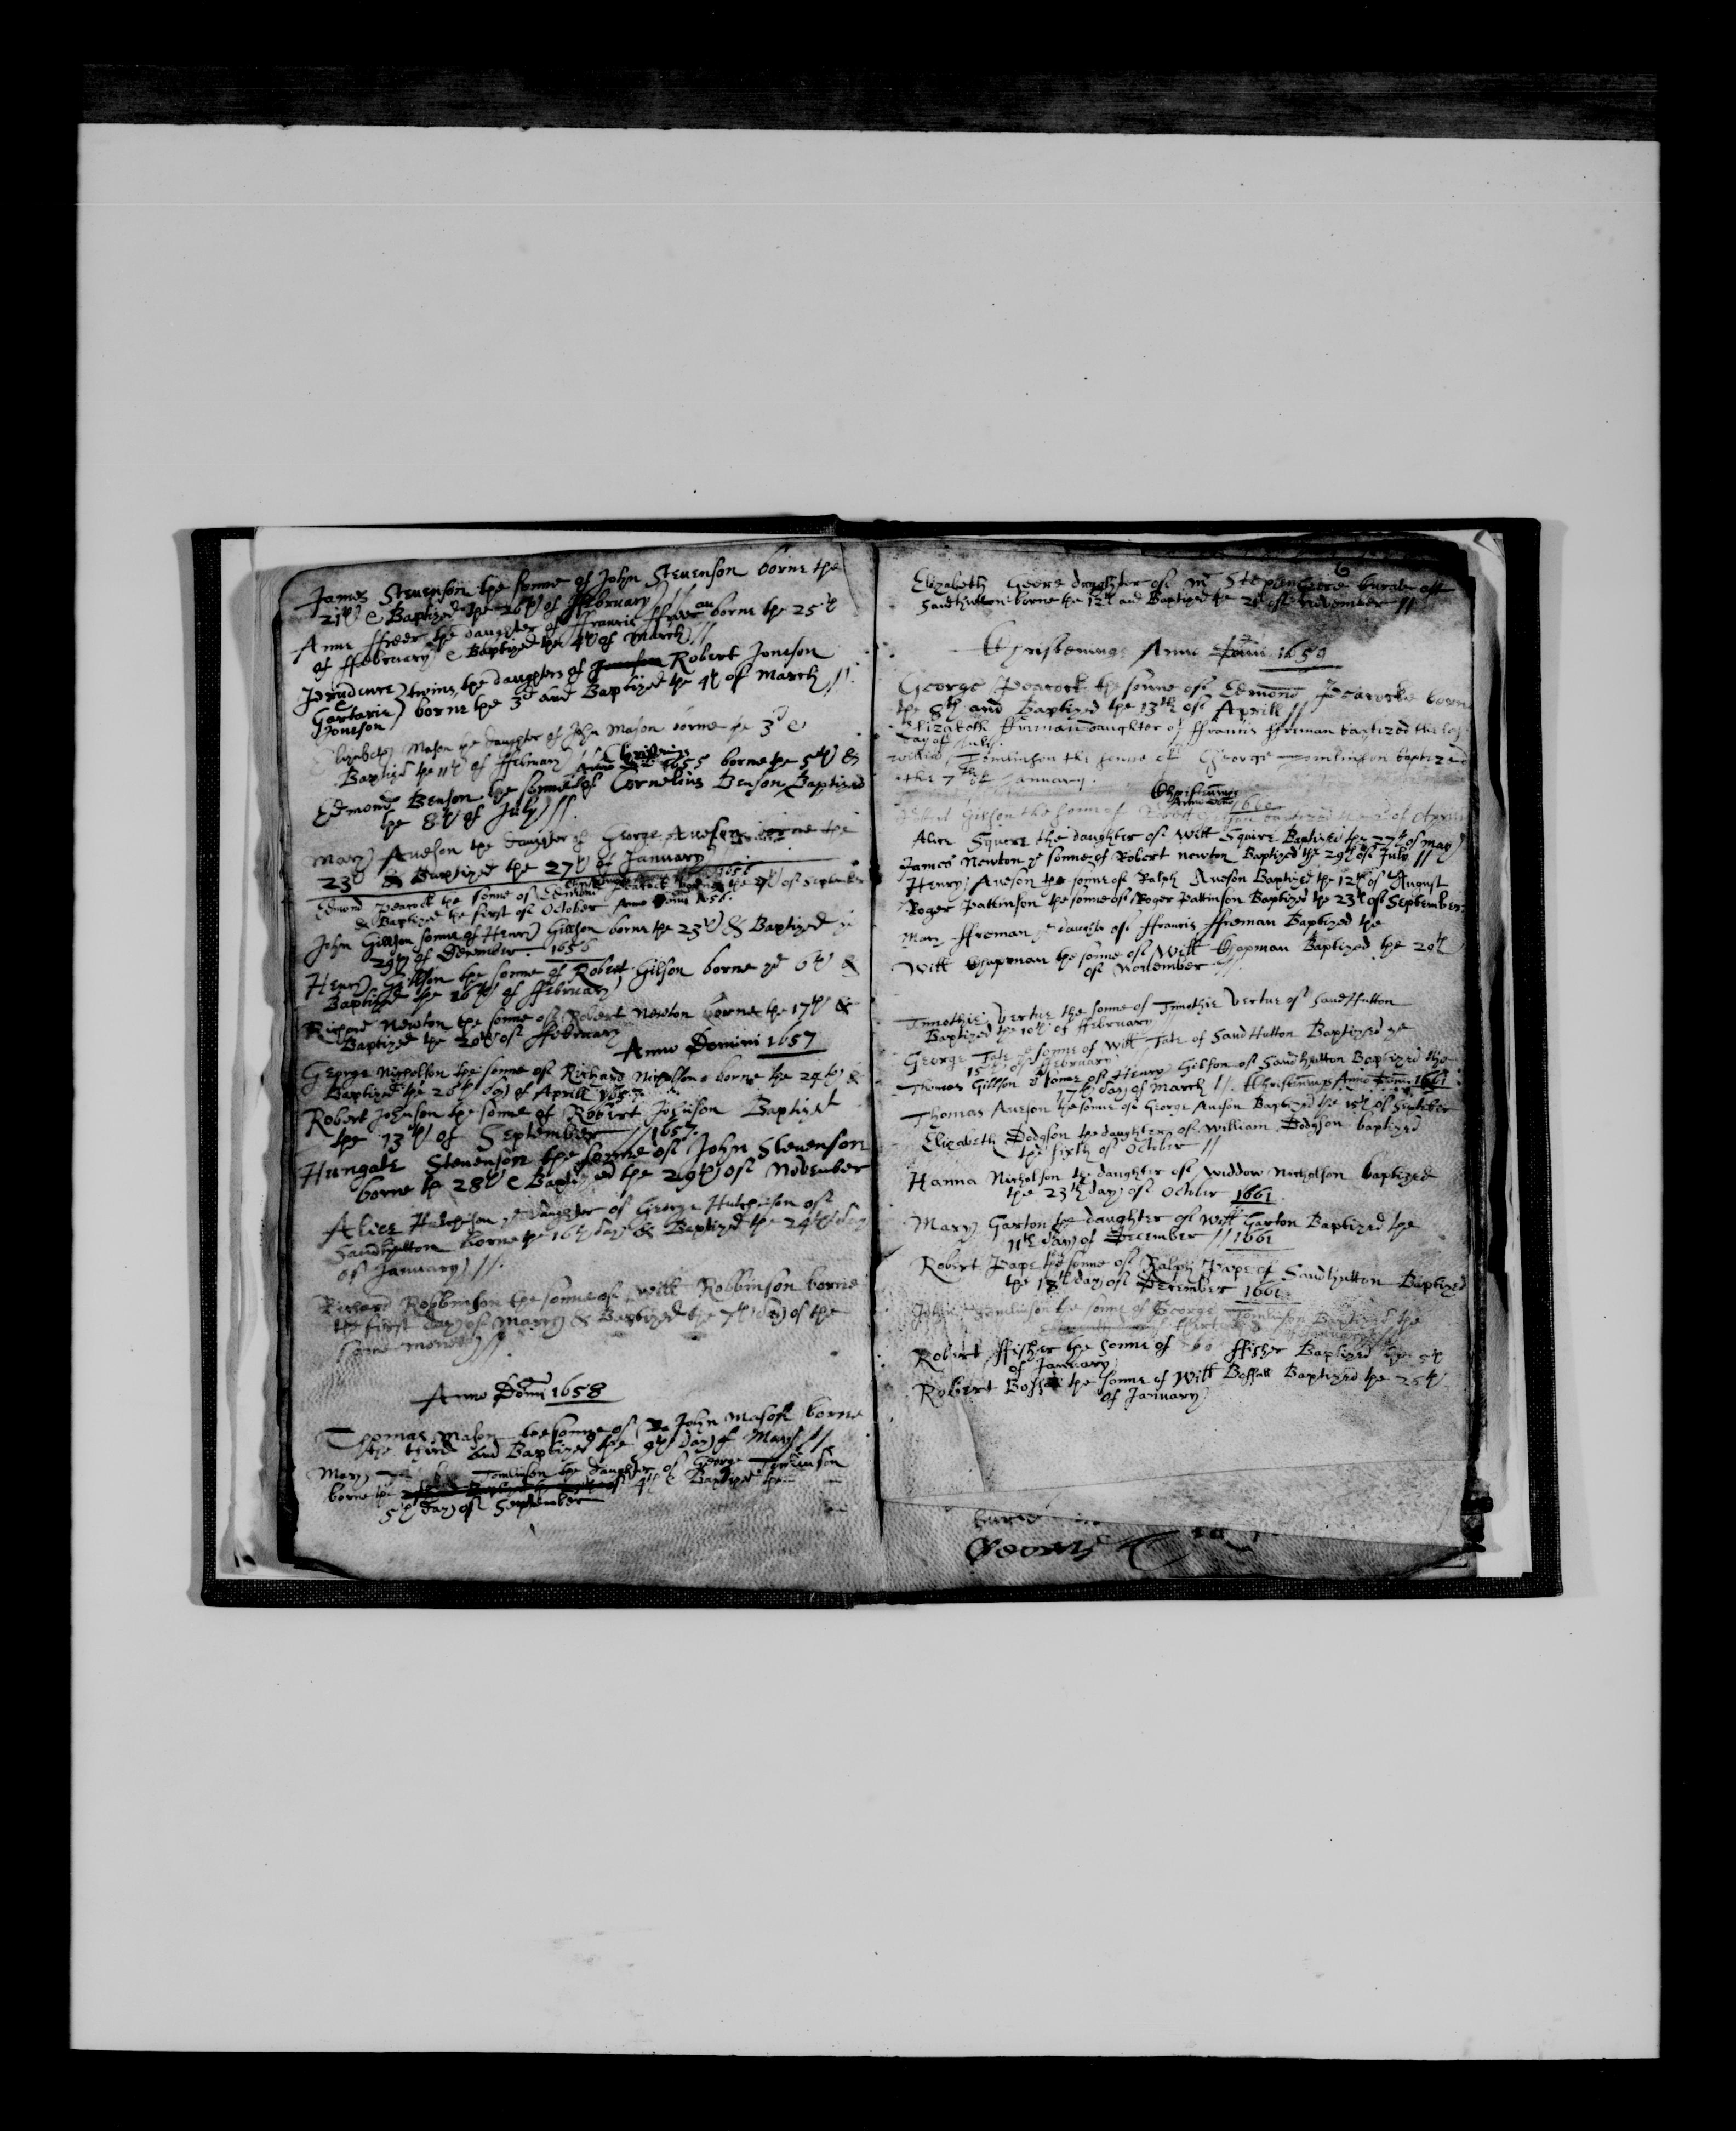 James Stevenson the sonne of John Stevenson borne the
21th & Baptized the 26th of ffebruary //
Anne ffreeman the daughter of ffrancis ffreeman borne the 25th
of ffebruary & Baptized the 4th of March //
Prudence twins, the daughters of Robert Joneson
Joneson borne the 3d and Baptized the 4th of March //
Elizabeth Mason the daughter of John Mason borne the 3d &
Baptized the 11th of
Christnings
Anno 1655
Edmond Benson the sonne of Cornelius Benson borne the 5th &
Baptized the 8th of July //
Mary Aueson the daughter of George Aueson borne the
23th & Baptized the 27th of January
1656
Edmond Peacock the sonne of Edmond Peacock borne the of September
& Baptized the first of October Anno Domi 1656.
John Gillson sonne of Henry Gillson borne the 23th & Baptized ye
29th of December 1656
Henry Gillson the sonne of Robert Gilson borne ye 6th &
Baptized the 26th of ffebruary
Richard Newton the sonne of Robert Newton borne the 17th &
Baptized the 20th of ffebruary
Anno Domini 1657
George Nicholson the sonne of Richard Nicholson borne the 24th &
Baptized the 26th day of Aprill 1657
Robert Johnson the sonne of Robert Johnson Baptized
the 13th of September // 1657.
Hungate Stevenson the sonne of John Stevenson
borne the 28th & Baptized the 29th of November
Alice Hutchison ye daughter of George Hutchison of
Sandhutton borne the 16th day & Baptized the 24th day
of January //
Richard Robbinson the sonne of Will Robbinson borne
the first day of March & Baptized the 7th day of the
same moneth //
Anno Domi 1658
Thomas Mason the sonne of John Mason borne
the third and Baptized the 9th day of May //
Mary Tomlinson the daughter of George Tomlinson
borne the 4th & Baptized the
5th day of September
6
Elizabeth Geere daughter of Mr Stephen Geere Curate att
Sandhutton borne the 12th and Baptized the of November //
Christenings Anno Domi 1659
George Peacock the sonne of Edmond Peacocke borne
the 8th and Baptized the 13th of Aprill //
Elizabeth ffreman daughter of ffrancis ffreman baptized the
day of July.
William Tomlinson the sonne of George Tomlinson baptized
the 7th of January.
Christnings
Anno Domi 1660
Gilson the sonne of Robert Gilson baptized the of Aprill
Alice Squire the daughter of Will Squire Baptized the 27th of may
James Newton ye sonne of Robert newton Baptized the 29th of July //
Henry Aueson the sonne of Ralph Aueson Baptized the 12th of August
Roger Pattinson the sonne of Roger Pattinson Baptized the 23th of September
Mary ffreman ye daughter of ffrancis ffreman Baptized the
Will Chapman the sonne of Will Chapman Baptized the 20th
of November //
Timothie Vertue the sonne of Timothie Vertue of Sandhutton
Baptized the 10th of ffebruary
George Tate ye sonne of Will Tate of Sand Hutton Baptized ye
15th of ffebruary
Thomas Gillson ye sonne of Henry Gilson of Sandhutton Baptized the
17th day of March // Christnings Anno Domi 1661
Thomas Aueson the sonne of George Aueson Baptized the 15th of September
Elizabeth Dodgson the daughter of William Dodgson baptized
the sixth of October //
Hanna Nicholson the daughter of widdow Nicholson baptized
the 23th day of October 1661.
Mary Garton the daughter of Will Garton Baptized the
11th day of December // 1661
Robert Pape the sonne of Ralph Pape of Sandhutton Baptized
the 18th day of December 1661.
John Tomlinson the sonne of George Tomlinson Baptized the
Robert ffisher the sonne of Tho ffisher Baptized the 5th
of January
Robert Boffall the sonne of Will Boffall Baptized the 26th
of January